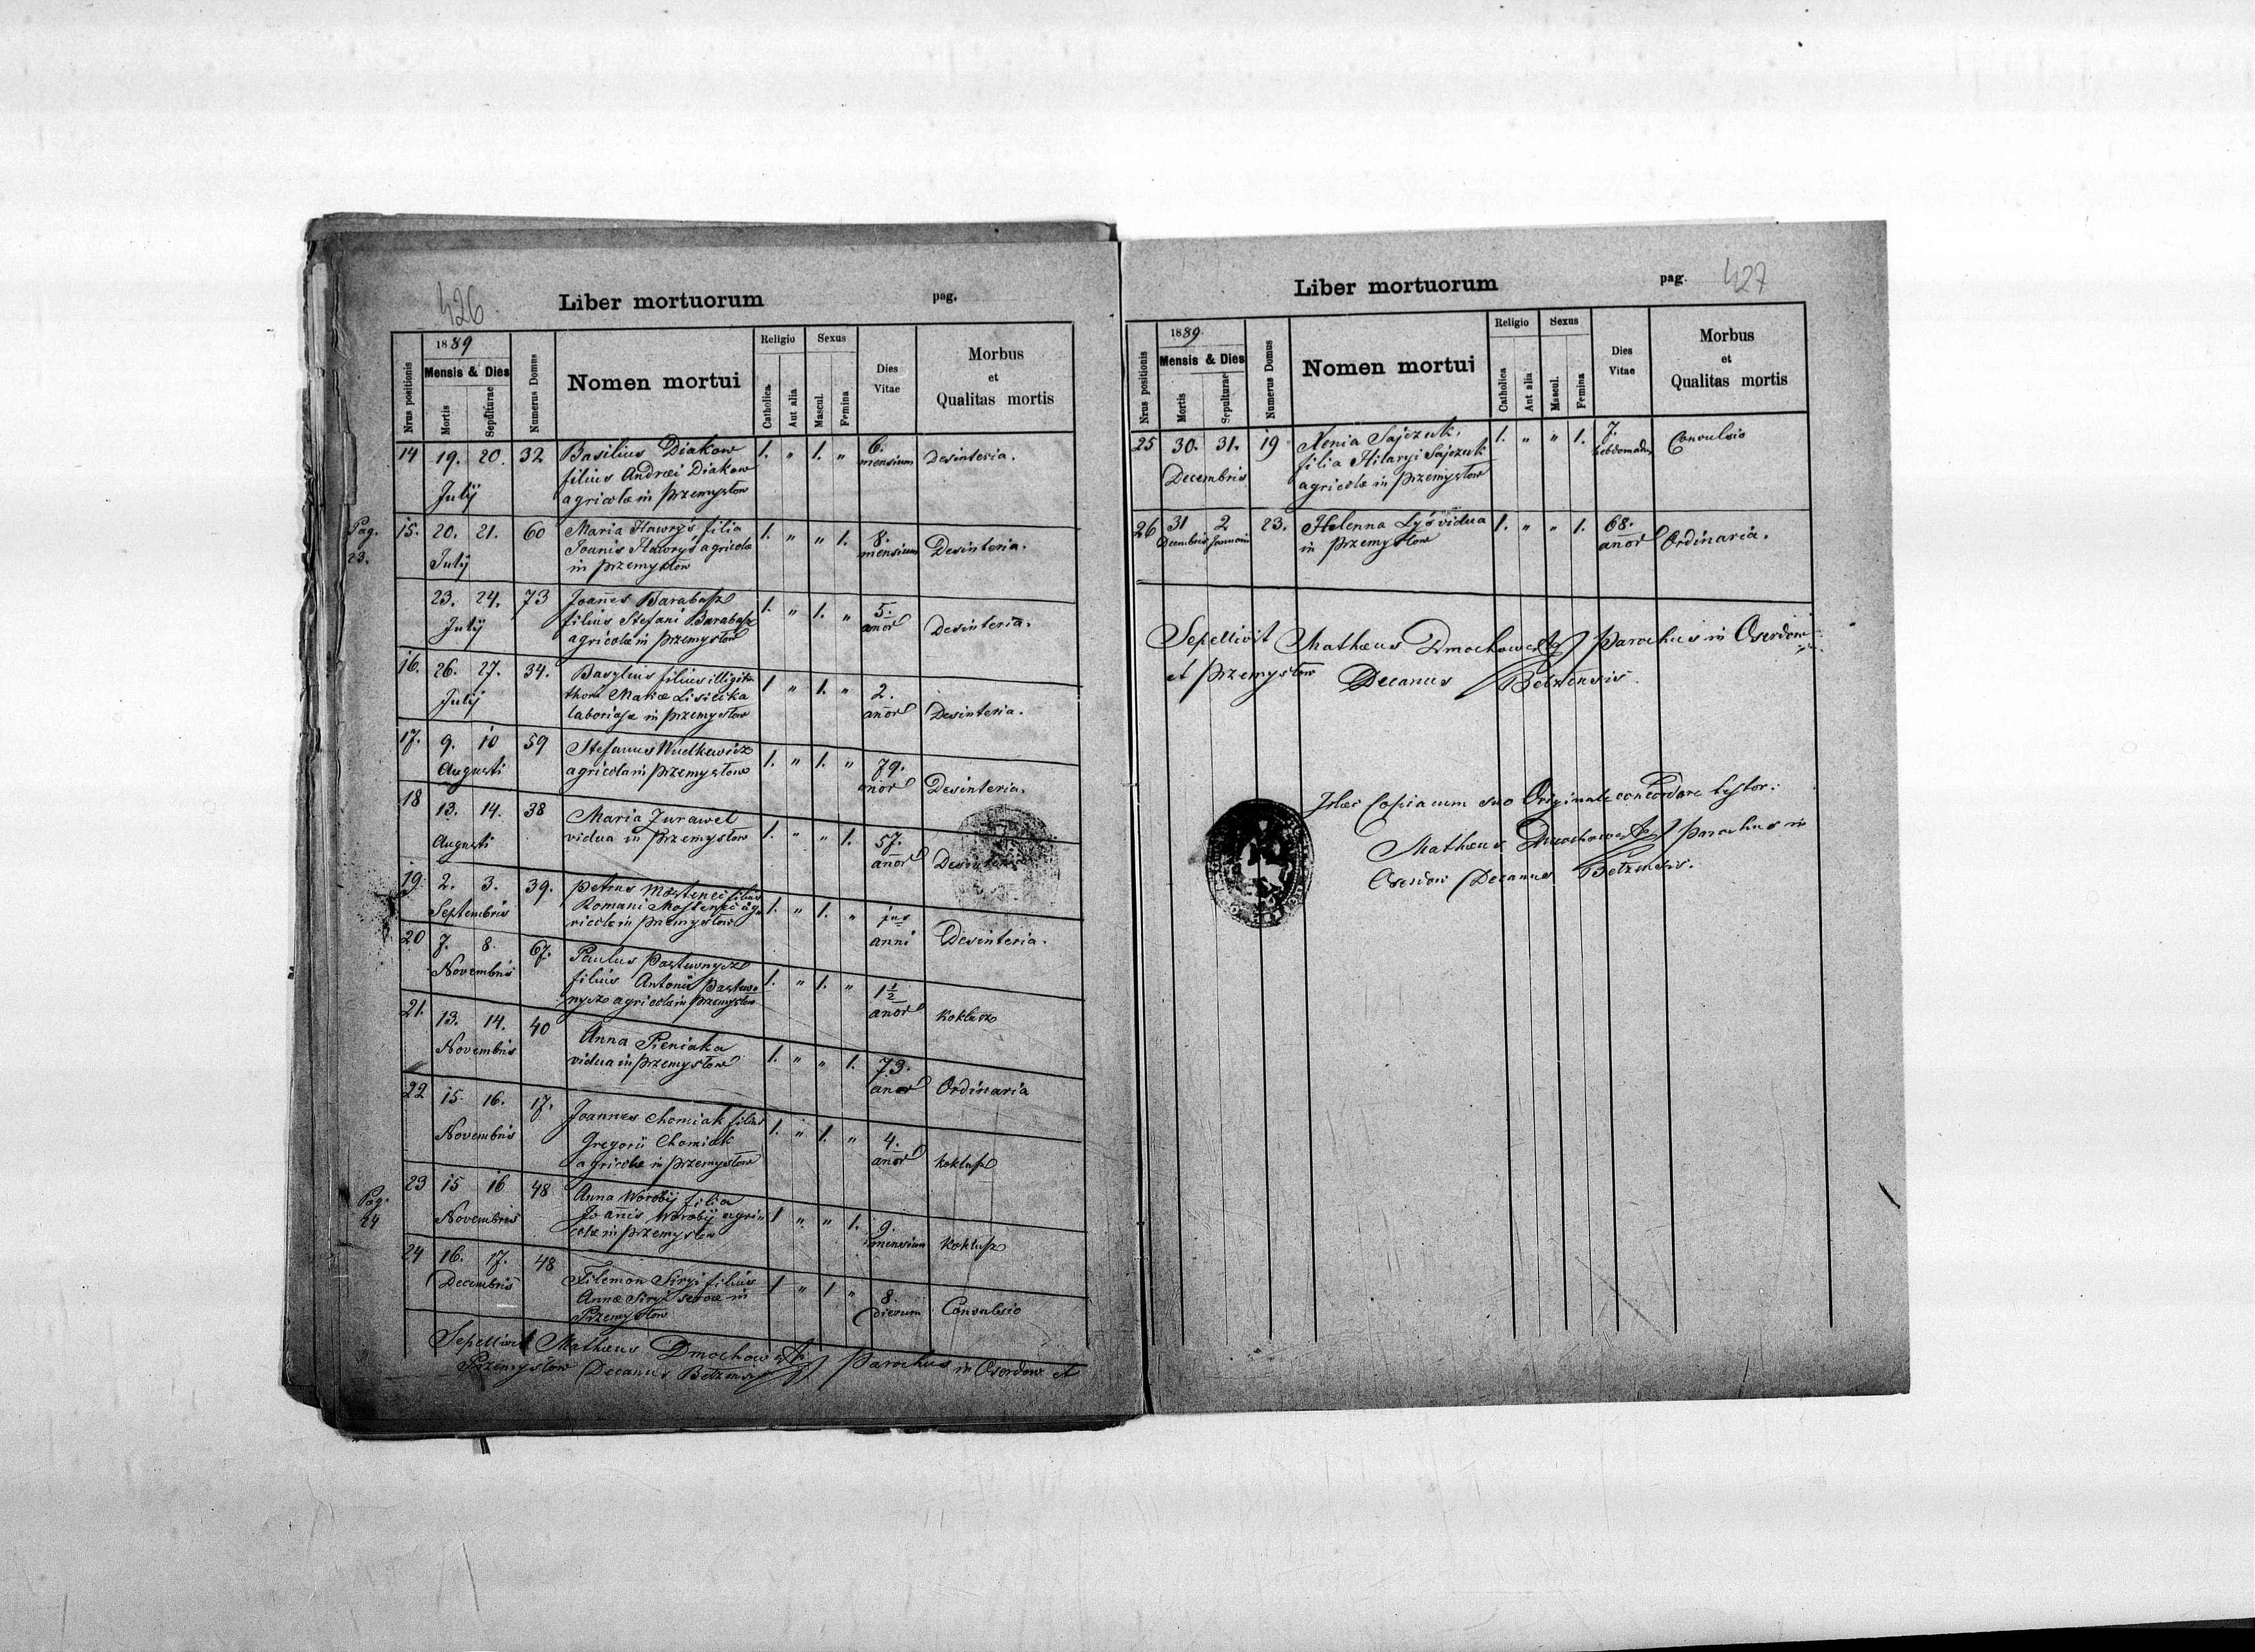 426
Liber mortuorum
pag.
Nrus positionis
1889
Mensis & Dies
Mortis
Sepulturae
Numerus Domus
Nomen mortui
Religio
Catholica
Aut alia
Sexus
Mascul.
Femina
Dies
Vitae
Morbus
et
Qualitas mortis
14 19. 20. 32 Basilius Diakow 1. " 1. " 6. Desinteria.
filius Andræi Diakow mensium
July agricolæ in Przemysłow
Pag. 23.
15. 20. 21. 60 Maria Hawryś filia 1. " " 1. 8. Desinteria.
Joanis Hawryś agricolæ mensium
July in Przemysłow
23. 24. 73 Joanes Barabasz 1. " 1. " 5. Desinteria.
July filius Stefani Barabasz anor
agricolæ in Przemysłow
16. 26. 27. 34. Basylius filius illigit. 1 " 1. " 2. Desinteria.
July thori Mariæ Lisiecka anor
in Przemysłow
17. 9. 10 59 Stefanus Wudkewicz 1. " 1. " 79. Desinteria.
Augusti agricola in Przemysłow anor
18 13. 14. 38 Maria Zurawel 1. " " 1. 57. Desinteria
Augusti vidua in Przemysłow anor
19. 2. 3. 39. Petrus filius 1. " 1. " Desinteria.
Septembris Romani ag= anni
ricolæ in Przemysłow
20 7. 8. 67. Paulus Pastawnycz 1. " 1. " 1 1/2 Koklusz
Novembris filius Antonii Pastaw= anor
nycz agricolæ in Przemysłow
21. 13. 14. 40 Anna Pieniaka 1. " " 1. 73. Ordinaria
Novembris vidua in Przemysłow anor
22 15. 16. 17. Joannes Chomiak filius 1. " 1. " 4. Koklusz
Novembris Gregorii Chomiak anor
agricolæ in Przemysłow
Pag. 24
23 15 16 48 Anna Worobij filia 1 " " 1. 9. Koklusz
Novembris Joannis Worobij agri= mensium
colæ in Przemysłow
24 16. 17. 48 Filemon Siryi filius 1 " 1 " 8. Convulsio
Decembris Annæ Siryi servæ in dierum
Przemysłow
Sepelivit Mathæus Dmochowski Parochus in Oserdow et
Przemysłow Decanus Belzensis
Liber mortuorum
pag. 427
Nrus positionis
1889
Mensis & Dies
Mortis
Sepulturae
Numerus Domus
Nomen mortui
Religio
Catholica
Aut alia
Sexus
Mascul.
Femina
Dies
Vitae
Morbus
et
Qualitas mortis
25 30. 31. 19 Xenia Sajczuk, 1. " " 1. 7. Convulsio
Decembris filia Hilaryi Sajczuk hebdomadu
agricolæ in Przemysłow
26 31 2 23. Helenna Lyś vidua 1. " " 1. 68. Ordinaria.
Decembris Januarii in Przemysłow anor
Sepellivit Mathæus Dmochowski Parochus in Oserdow
et Przemysłow Decanus Belzensis.
Hæc Copia cum suo Originale concordare testor:
Mathæus Dmochowski Parochus in
Oserdow Decanus Belzensis.